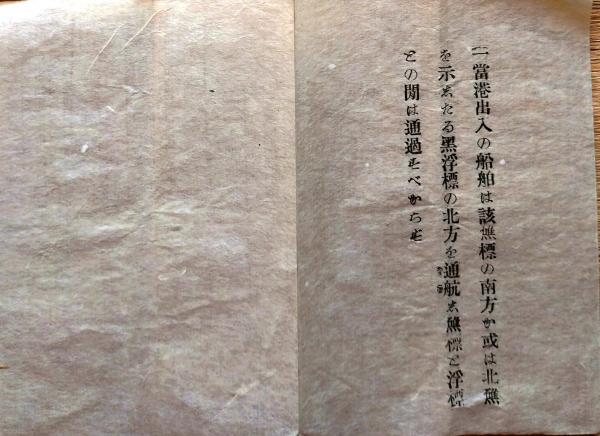 一當港出入の船舶は該礁標の南方か或は北礁
を示志たる黑浮標の北方を通航志礁標と浮標
との間は通過すべからず